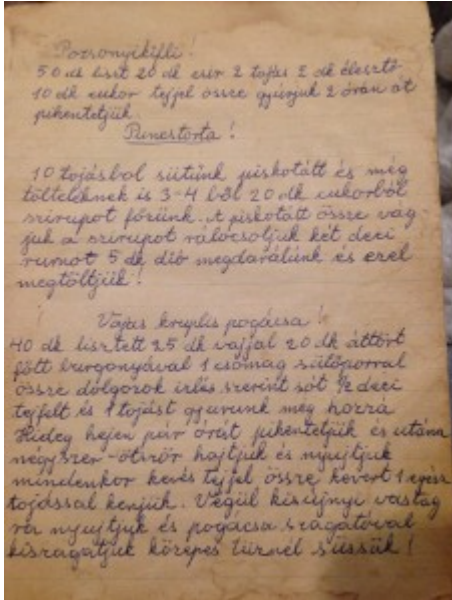 Pozsonyikifli!
50 dk liszt 20 dk zsir 2 tojás 2 dk élesztő
10 dk cukor tejjel össze gyúrjuk 2 órán át
pihentetjük
Puncstorta!
10 tojásbol sütünk piskotátt és még
tölteléknek is 3-4 ból 20 dk cukorból
szirupot főzünk. A piskotátt össze vág-
juk a szirupot rálocsoljuk két deci
rumot 5 dk dió megdarálunk és ezel
megtöltjük!
Vajas kruplis pogácsa!
40 dk lisztett 25 dk vajjal 20 dk áttört
főtt burgonyával 1 csomag sütőporral
össze dolgozok izlés szerint sót 1/2 deci
tejfelt és 1 tojást gyurunk meg hozzá
Hideg hejen pár órást pihentetjük és utána
négyszer-ötször hajtjuk és nyujtjuk
mindenkor kevés tejjel össze kevert 1 egész
tojással kenjük. Végül kisujnyi vastag
ra nyujtjuk és pogácsa szagatóval
kiszagatjuk közepes tüznél süssük!